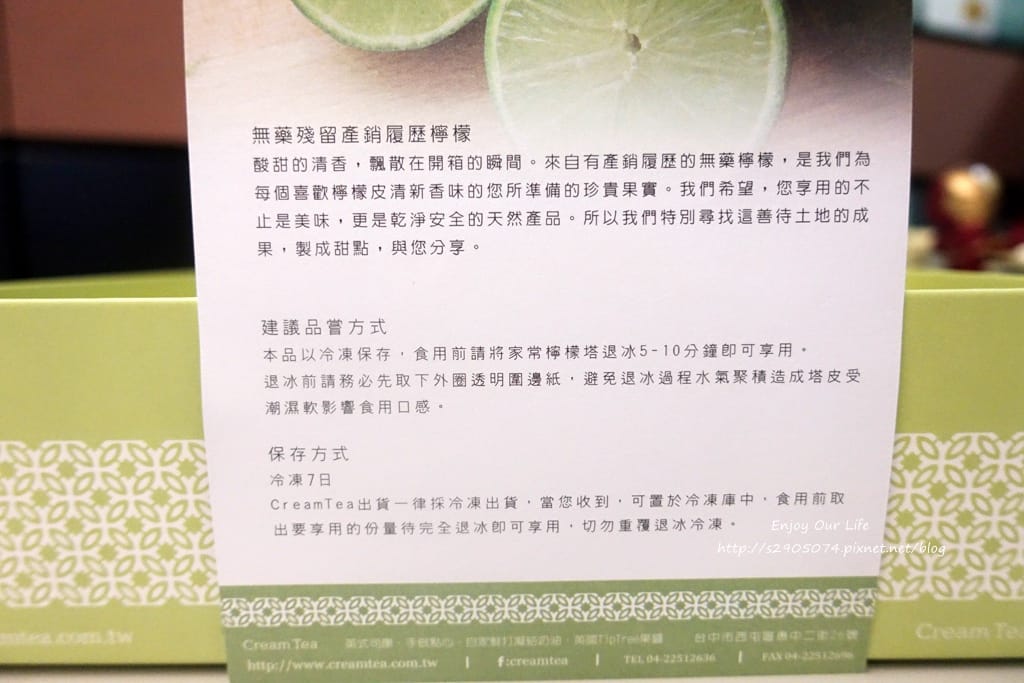 無藥殘留產銷履歷檸檬
酸甜的清香，飄散在開箱的瞬間。來自有產銷履歷的無藥檸檬，是我們為
每個喜歡檸檬皮清新香味的您所準備的珍貴果實。我們希望，您享用的不
止是美味，更是乾淨安全的天然產品。所以我們特別尋找這善待土地的成
果，製成甜點，與您分享。
建議品嘗方式
本品以冷凍保存，食用前請將家常檸檬塔退冰5-10分鐘即可享用。
退冰前請務必先取下外圈透明圍邊紙，避免退冰過程水氣聚積造成塔皮受
潮濕軟影響食用口感。
保存方式
冷凍7日
CreamTea出貨一律採冷凍出貨，當您收到，可置於冷凍庫中，食用前取
出要享用的份量待完全退冰即可享用，切勿重覆退冰冷凍。
Enjoy Our Life
http://s2905074.pixnet.net/blog
Cream Tea 英式司康．手做點心．自家鮮打凝結奶油．英國TipTree果醬 台中市西屯區惠中二街26號
http://www.creamtea.com.tw | f:creamtea | TEL 04-22512636 | FAX 04-22512696
amtea.com.tw
Cream Tea